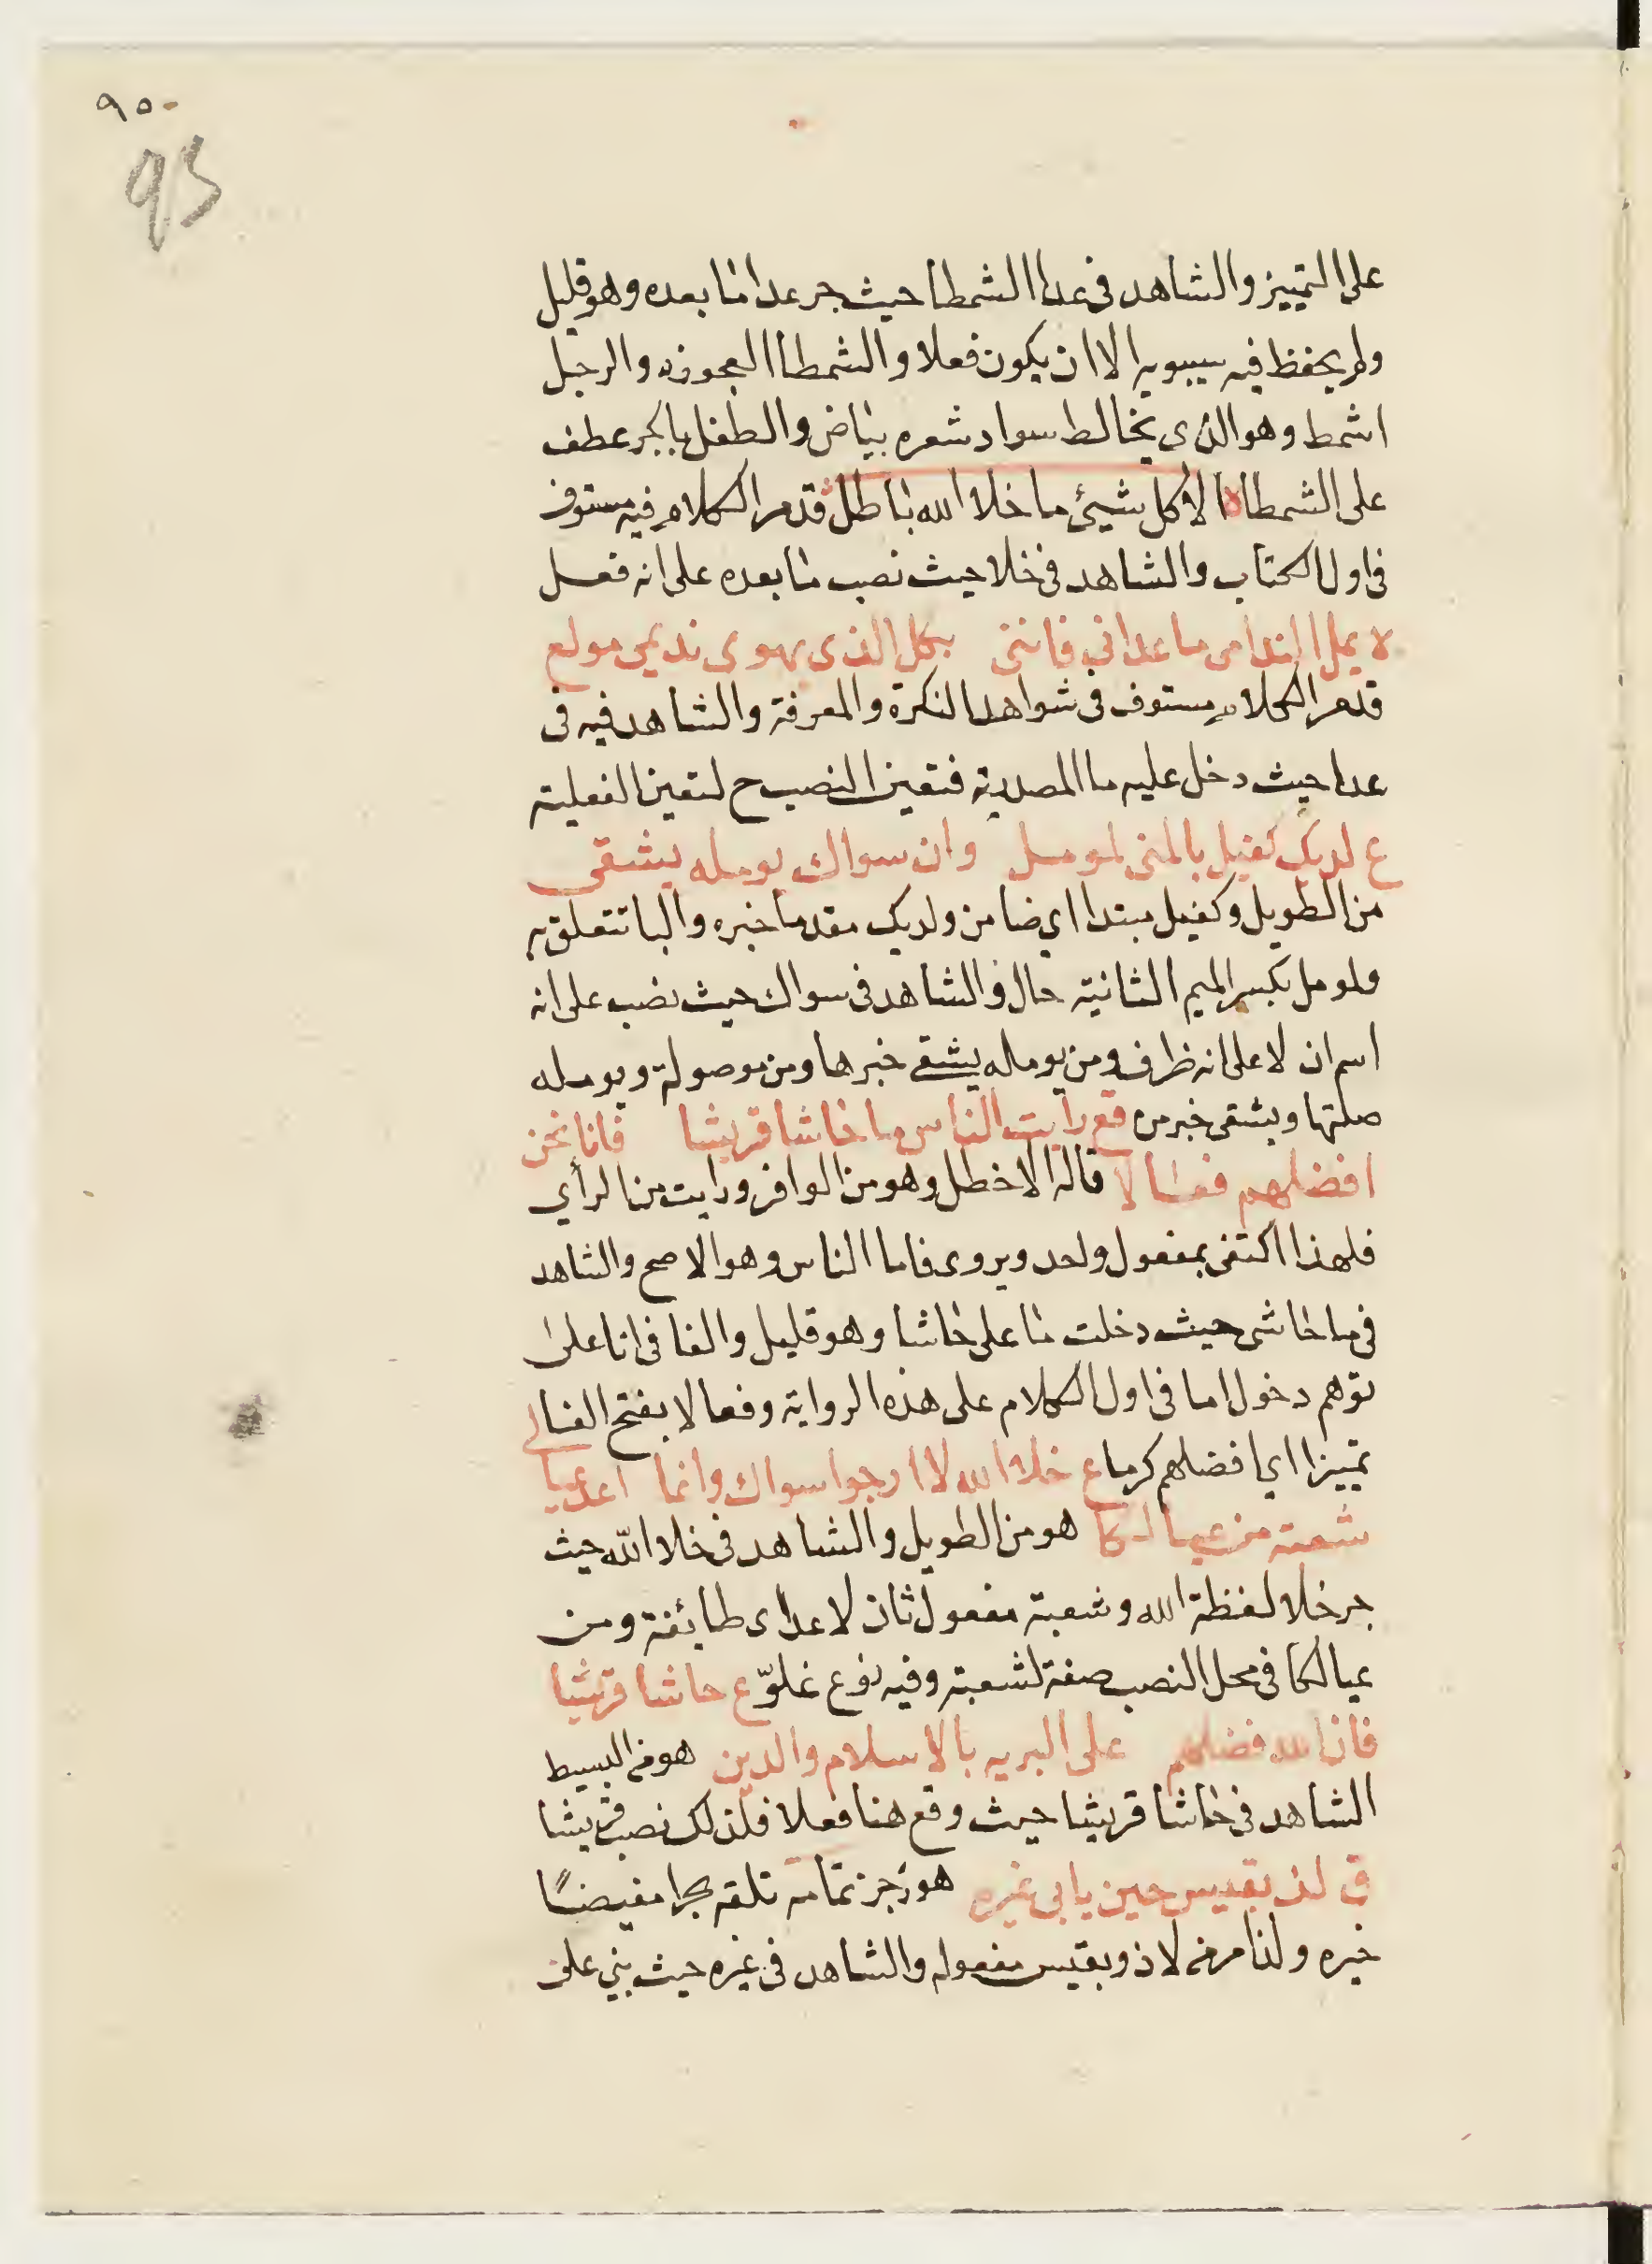 ٩٥٠
95
على التمييز والشاهد فى عدا الشمطا حيث جر عدا ما بعده وهو قليل
ولم يحفظ فيه سيبويه الا ان يكون فعلا والشمطا العجوزه والرجل
اشمط وهو الذى يخالط سواد شعره بياض والطفل بالجر عطف
على الشمطا ه الا كل شيئ ما خلا الله باطل قدمر الكلام فيه مستوف
فى اول الكتاب والشاهد فى خلا حيث نصب ما بعده على انه فعل
ه يمل الندامى ما عدانى فاننى بكل الذى يهوى نديمى مولع
قدمر الكلام مستوف فى شواهد النكرة والمعرفة والشاهد فيه فى
عدا حيث دخل عليه ما المصدرية فتعين النصب ح لتعين الفعلية
ع لديك كفيل بالمنى لمومل وان سواك يومله يشقى
من الطويل وكفيل مبتدا اى ضامن ولديك مقدما خبره والبا تتعلق به
ولومل بكسر الميم الثانية حال والشاهد فى سواك حيث نصب على انه
اسم ان لا على انه ظرف ومن يومله يشقى خبرها ومن موصولة ويومله
صلتها ويشقى خبر من قع رايت الناس ما خاشا قريشا فانا نحن
افضلهم فعالا قاله الاخطل وهو من الوافر ورايت من الرأي
فلهذا اكتفى بمفعول واحد ويروى فاما الناس وهو الاصح والشاهد
فى ما حاشى حيث دخلت ما على حاشا وهو قليل والفا فى انا على
توهم دخول اما فى اول الكلام على هذه الرواية وفعالا بفتح الفا لى
تمييزا اى افضلهم كرما ع خلا الله لا ارجوا سواك وانما اعد عيا
شعبة من عيالكا هو من الطويل والشاهد فى خلا الله حيث
جر خلا لفظة الله وشعبة مفعول ثان لاعد اى طائفة ومن
عيالكا فى محل النصب صفة لشعبة وفيه نوع غلوّ ع حاشا قريشا
فان الله فضلهم على البريه بالاسلام والدين هو من البسيط
الشاهد فى حاشا قريشا حيث وقع هنا فعلا فلذلك نصب قريشا
ق لذ بقيس حين يابى غيره هو رجز تمامه تلقه بحرا مفيضًا
خيره ولذ امر من لاذ وبقيس مفعوله والشاهد فى غيره حيث بني على